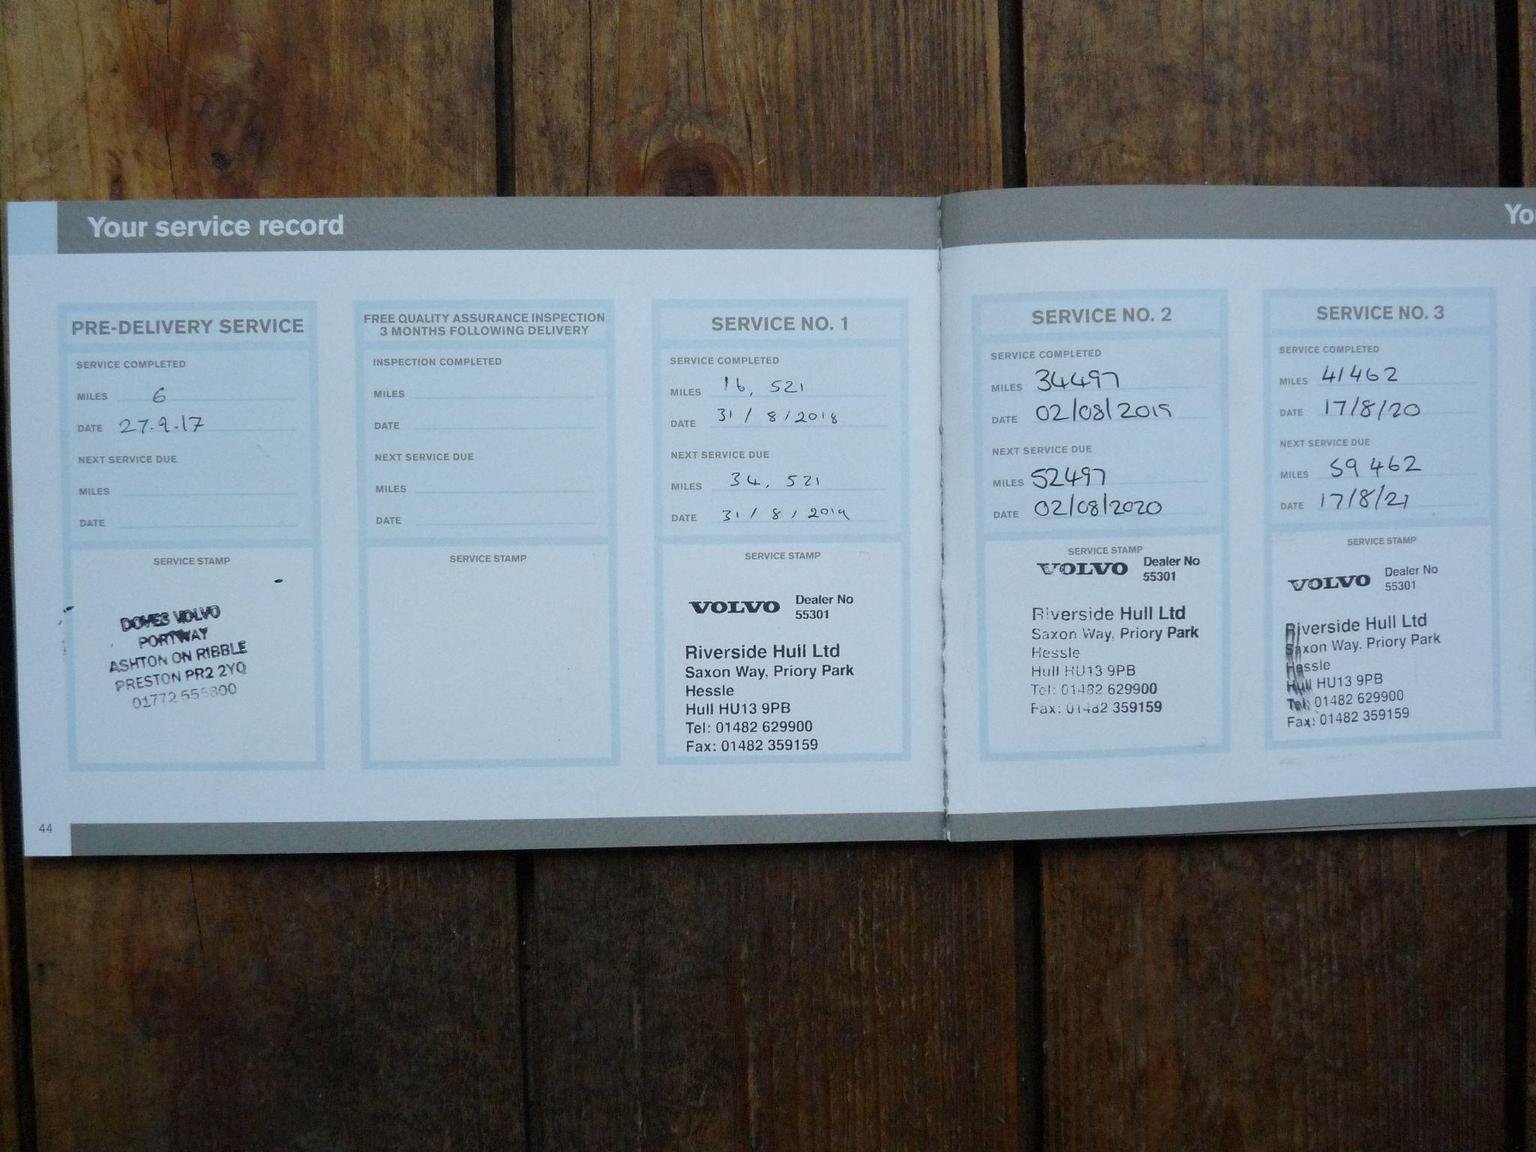 Your service record
PRE-DELIVERY SERVICE
SERVICE COMPLETED
MILES 6
DATE 27.9.17
NEXT SERVICE DUE
MILES
DATE
SERVICE STAMP
DOVES VOLVO
PORTWAY
ASHTON ON RIBBLE
PRESTON PR2 2YQ
01772 555800
FREE QUALITY ASSURANCE INSPECTION
3 MONTHS FOLLOWING DELIVERY
INSPECTION COMPLETED
MILES
DATE
NEXT SERVICE DUE
MILES
DATE
SERVICE STAMP
SERVICE NO. 1
SERVICE COMPLETED
MILES 16, 521
DATE 31 / 8 / 2018
NEXT SERVICE DUE
MILES 34, 521
DATE 31 / 8 / 2019
SERVICE STAMP
VOLVO Dealer No
55301
Riverside Hull Ltd
Saxon Way, Priory Park
Hessle
Hull HU13 9PB
Tel: 01482 629900
Fax: 01482 359159
44
Yo
SERVICE NO. 2
SERVICE COMPLETED
MILES 34497
DATE 02/08/2019
NEXT SERVICE DUE
MILES 52497
DATE 02/08/2020
SERVICE STAMP
VOLVO Dealer No
55301
Riverside Hull Ltd
Saxon Way, Priory Park
Hessle
Hull HU13 9PB
Tel: 01482 629900
Fax: 01482 359159
SERVICE NO. 3
SERVICE COMPLETED
MILES 41462
DATE 17/8/20
NEXT SERVICE DUE
MILES 59 462
DATE 17/8/21
SERVICE STAMP
VOLVO Dealer No
55301
Riverside Hull Ltd
Saxon Way, Priory Park
Hessle
Hull HU13 9PB
Tel: 01482 629900
Fax: 01482 359159